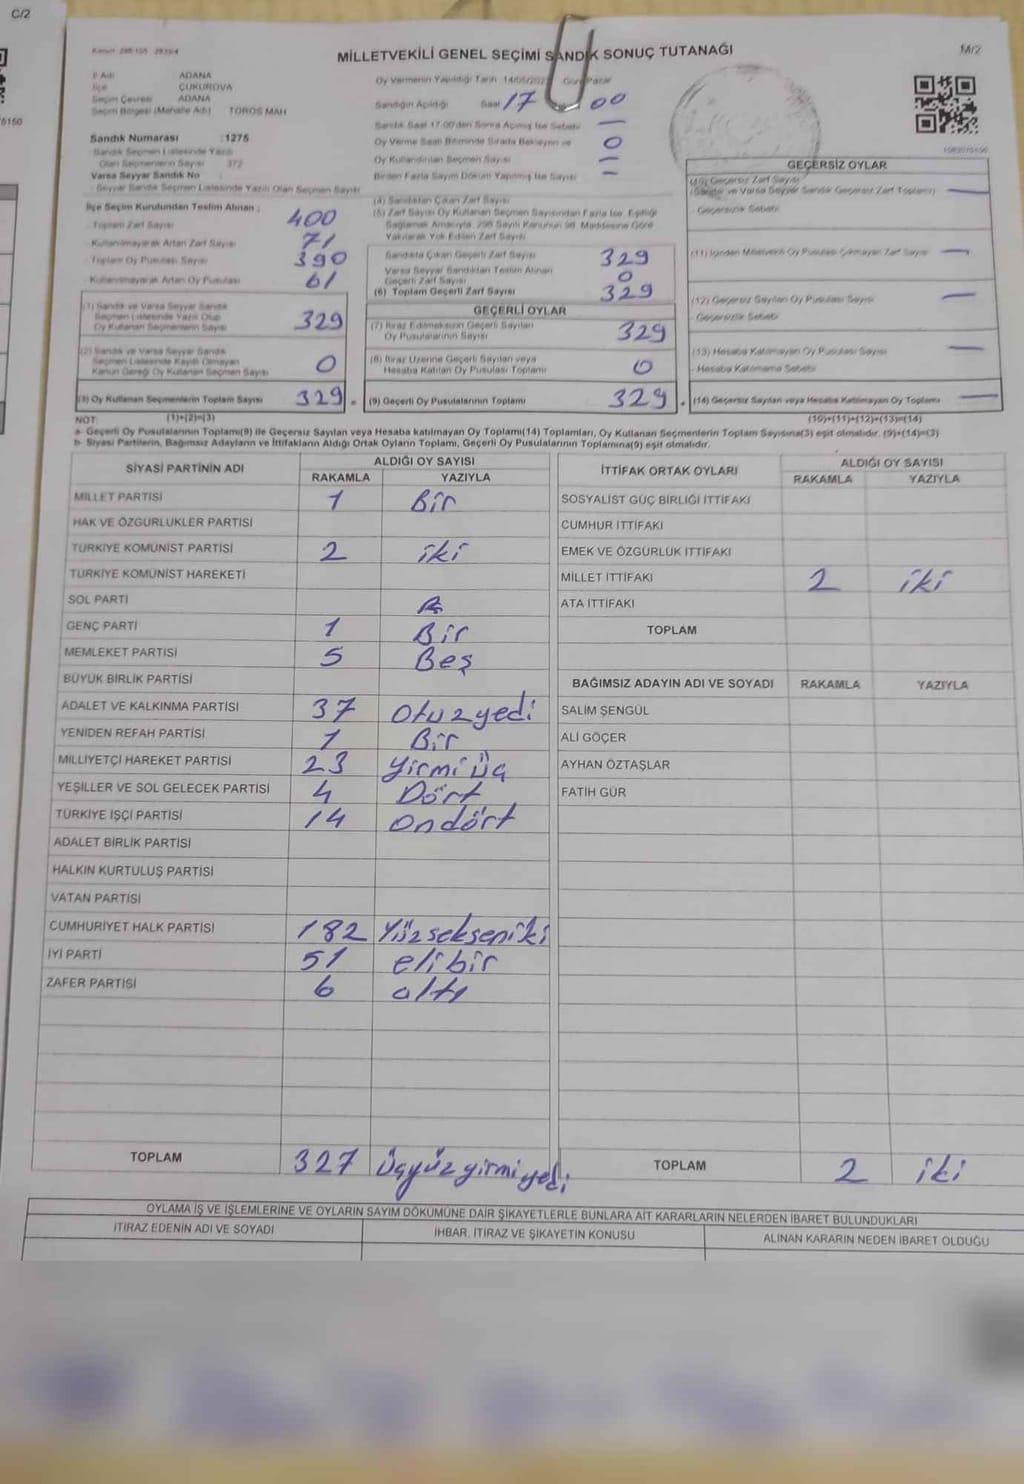 C/2
MİLLETVEKİLİ GENEL SEÇİMİ SANDIK SONUÇ TUTANAĞI
M/2
İl Adı ADANA
İlçe ÇUKUROVA
Seçim Çevresi ADANA
Seçim Bölgesi (Mahalle Adı) TOROS MAH
Sandık Numarası :1275
Sandık Seçmen Listesinde Yazılı
Olan Seçmenlerin Sayısı 372
Varsa Seyyar Sandık No
Seyyar Sandık Seçmen Listesinde Yazılı Olan Seçmen Sayısı
İlçe Seçim Kurulundan Teslim Alınan ;
Toplam Zarf Sayısı 400
Kullanılmayarak Artan Zarf Sayısı 71
Toplam Oy Pusulası Sayısı 390
Kullanılmayarak Artan Oy Pusulası 61
(1) Sandık ve Varsa Seyyar Sandık
Seçmen Listesinde Yazılı Olup
Oy Kullanan Seçmenlerin Sayısı 329
(2) Sandık ve Varsa Seyyar Sandık
Seçmen Listesinde Kayıtlı Olmayan
Kanun Gereği Oy Kullanan Seçmen Sayısı 0
(3) Oy Kullanan Seçmenlerin Toplam Sayısı 329
Oy Vermenin Yapıldığı Tarih 14/05/202 Gün Pazar
Sandığın Açıldığı Saat 17 00
Sandık Saat 17:00'den Sonra Açılmış İse Sebebi —
Oy Verme Saati Bitiminde Sırada Bekleyen ve 0
Oy Kullandırılan Seçmen Sayısı —
Birden Fazla Sayım Döküm Yapılmış İse Sayısı —
(4) Sandıktan Çıkan Zarf Sayısı
(5) Zarf Sayısı Oy Kullanan Seçmen Sayısından Fazla İse, Eşitliği
Sağlamak Amacıyla, 298 Sayılı Kanunun 98. Maddesine Göre
Yakılarak Yok Edilen Zarf Sayısı
Sandıkta Çıkan Geçerli Zarf Sayısı 329
Varsa Seyyar Sandıktan Teslim Alınan
Geçerli Zarf Sayısı 0
(6) Toplam Geçerli Zarf Sayısı 329
GEÇERLİ OYLAR
(7) İtiraz Edilmeksizin Geçerli Sayılan
Oy Pusulalarının Sayısı 329
(8) İtiraz Üzerine Geçerli Sayılan veya
Hesaba Katılan Oy Pusulası Toplamı 0
(9) Geçerli Oy Pusulalarının Toplamı 329
GEÇERSİZ OYLAR
(10) Geçersiz Zarf Sayısı
(Sandık ve Varsa Seyyar Sandık Geçersiz Zarf Toplamı) —
Geçersizlik Sebebi
(11) İçinden Milletvekili Oy Pusulası Çıkmayan Zarf Sayısı —
(12) Geçersiz Sayılan Oy Pusulası Sayısı —
Geçersizlik Sebebi
(13) Hesaba Katılmayan Oy Pusulası Sayısı —
- Hesaba Katılmama Sebebi
(14) Geçersiz Sayılan veya Hesaba Katılmayan Oy Toplamı —
NOT: (1)+(2)=(3) (10)+(11)+(12)+(13)=(14)
a- Geçerli Oy Pusulalarının Toplamı(9) ile Geçersiz Sayılan veya Hesaba katılmayan Oy Toplamı(14) Toplamları, Oy Kullanan Seçmenlerin Toplam Sayısına(3) eşit olmalıdır. (9)+(14)=(3)
b- Siyasi Partilerin, Bağımsız Adayların ve İttifakların Aldığı Ortak Oyların Toplamı, Geçerli Oy Pusulalarının Toplamına(9) eşit olmalıdır.
SİYASİ PARTİNİN ADI ALDIĞI OY SAYISI
RAKAMLA YAZIYLA
MİLLET PARTİSİ 1 Bir
HAK VE ÖZGÜRLÜKLER PARTİSİ
TÜRKİYE KOMÜNİST PARTİSİ 2 iki
TÜRKİYE KOMÜNİST HAREKETİ
SOL PARTİ
GENÇ PARTİ 1 Bir
MEMLEKET PARTİSİ 5 Beş
BÜYÜK BİRLİK PARTİSİ
ADALET VE KALKINMA PARTİSİ 37 Otuzyedi
YENİDEN REFAH PARTİSİ 1 Bir
MİLLİYETÇİ HAREKET PARTİSİ 23 Yirmi üç
YEŞİLLER VE SOL GELECEK PARTİSİ 4 Dört
TÜRKİYE İŞÇİ PARTİSİ 14 ondört
ADALET BİRLİK PARTİSİ
HALKIN KURTULUŞ PARTİSİ
VATAN PARTİSİ
CUMHURİYET HALK PARTİSİ 182 Yüzsekseniki
İYİ PARTİ 51 elibir
ZAFER PARTİSİ 6 altı
TOPLAM 327 üçyüzyirmiyedi
İTTİFAK ORTAK OYLARI ALDIĞI OY SAYISI
RAKAMLA YAZIYLA
SOSYALİST GÜÇ BİRLİĞİ İTTİFAKI
CUMHUR İTTİFAKI
EMEK VE ÖZGÜRLÜK İTTİFAKI
MİLLET İTTİFAKI 2 iki
ATA İTTİFAKI
TOPLAM
BAĞIMSIZ ADAYIN ADI VE SOYADI RAKAMLA YAZIYLA
SALİM ŞENGÜL
ALİ GÖÇER
AYHAN ÖZTAŞLAR
FATİH GÜR
TOPLAM 2 iki
OYLAMA İŞ VE İŞLEMLERİNE VE OYLARIN SAYIM DÖKÜMÜNE DAİR ŞİKAYETLERLE BUNLARA AİT KARARLARIN NELERDEN İBARET BULUNDUKLARI
İTİRAZ EDENİN ADI VE SOYADI İHBAR, İTİRAZ VE ŞİKAYETİN KONUSU ALINAN KARARIN NEDEN İBARET OLDUĞU